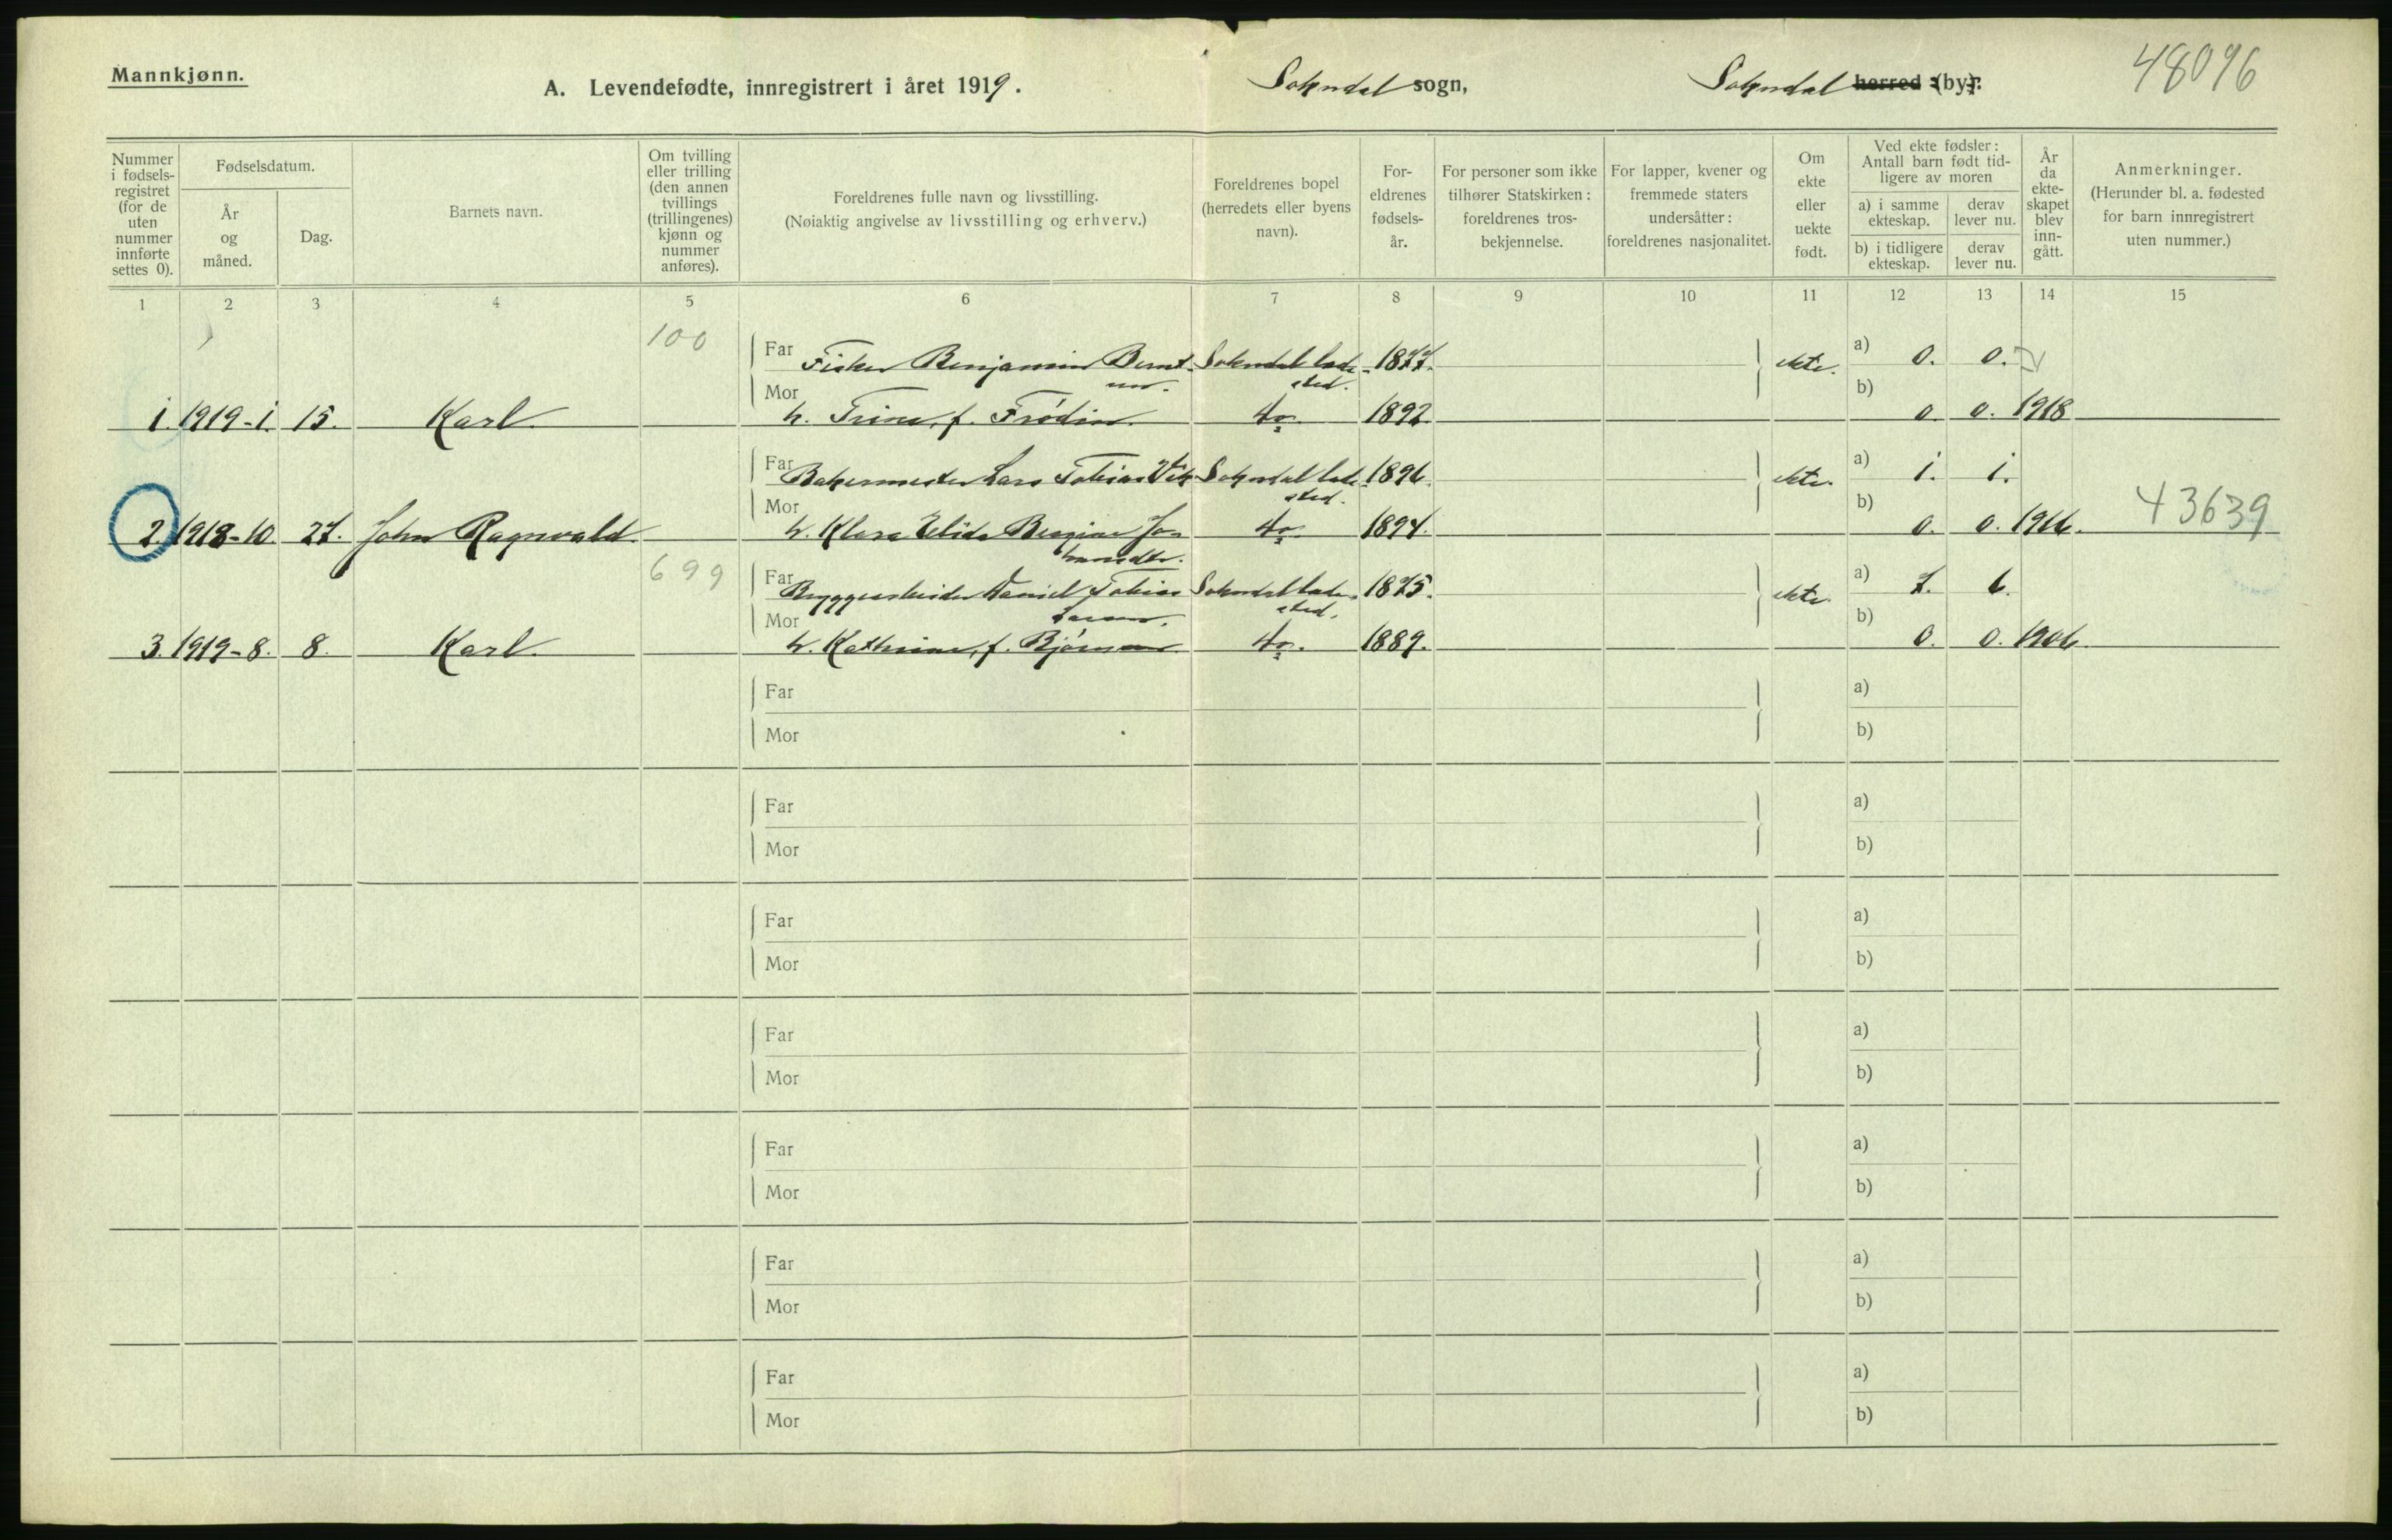 Mannkjønn.
A. Levendefødte, innregistrert i året 1919.
Sokndal sogn,
Sokndal herred (by).
48096
Nummer i fødsels-registret (for de uten nummer innførte settes 0).
Fødselsdatum.
År og måned.
Dag.
Barnets navn.
Om tvilling eller trilling (den annen tvillings (trillingenes) kjønn og nummer anføres).
Foreldrenes fulle navn og livsstilling.
(Nøiaktig angivelse av livsstilling og erhverv.)
Foreldrenes bopel (herredets eller byens navn).
For-eldrenes fødsels-år.
For personer som ikke tilhører Statskirken: foreldrenes tros-bekjennelse.
For lapper, kvener og fremmede staters undersåtter: foreldrenes nasjonalitet.
Om ekte eller uekte født.
Ved ekte fødsler: Antall barn født tid-ligere av moren
a) i samme ekteskap.
derav lever nu.
b) i tidligere ekteskap.
derav lever nu.
År da ekte-skapet blev inn-gått.
Anmerkninger.
(Herunder bl. a. fødested for barn innregistrert uten nummer.)
1 2 3 4 5 6 7 8 9 10 11 12 13 14 15
100
Far Fisker Benjamin Bernt- Sokndal lade- 1877. ekte. a) 0. 0.
sen. sted.
Mor b)
1. 1919-1. 15. Karl h. Trine, f. Frödin do. 1892. 0. 0. 1918
Far Bakermester Lars Tobias Vik Sokndal lade- 1896. ekte. a) 1. 1.
sted.
Mor b)
2. 1918-10. 27. John Ragnvald h. Klara Elida Bergine Jo- do. 1894. 0. 0. 1916. 43639
hansdtr.
699
Far Bryggearbeider Daniel Tobias Sokndal lade- 1875. ekte. a) 7. 6.
sted.
Mor b)
3. 1919-8. 8. Karl h. Kathrine, f. do. 1889. 0. 0. 1906.
Far a)
Mor b)
Far a)
Mor b)
Far a)
Mor b)
Far a)
Mor b)
Far a)
Mor b)
Far a)
Mor b)
Far a)
Mor b)